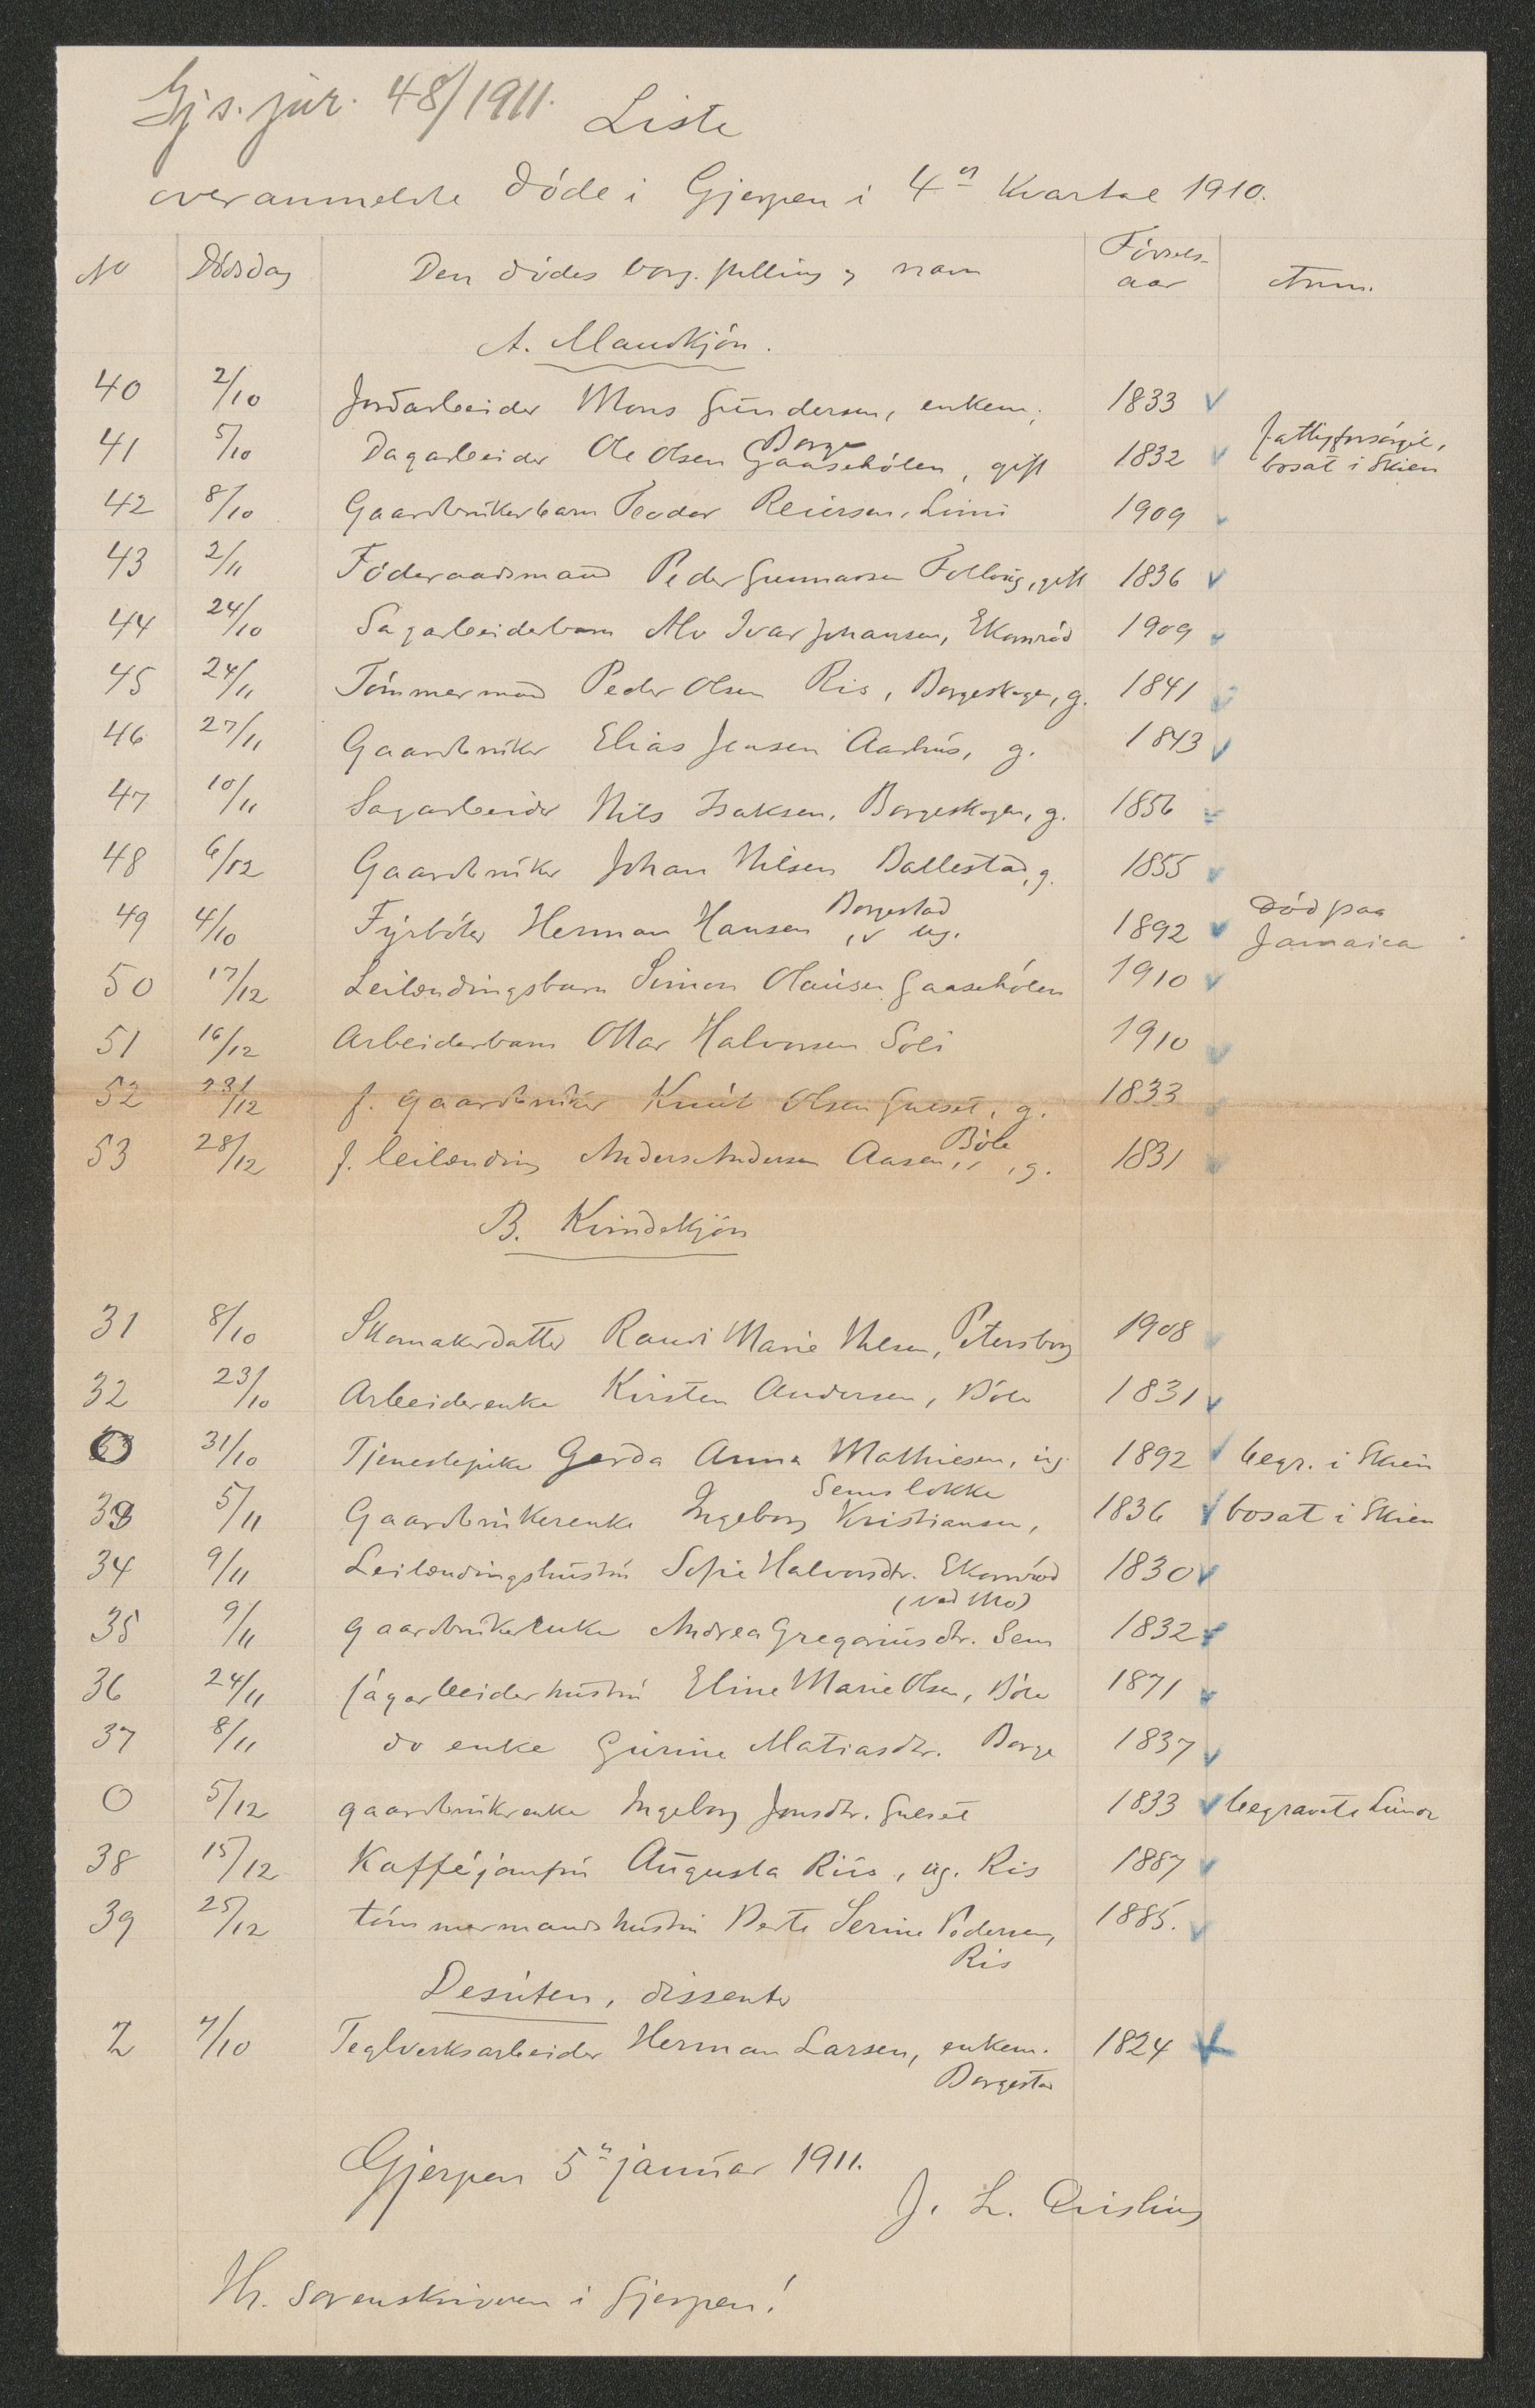 Gjs. jnr. 48/1911.
Liste
over anmeldte døde i Gjerpen i 4de Kvartal 1910.
No Dødsdag Den dødes borg. stilling og navn Fødsels-aar Anm.
A. Mandkjøn.
40 2/10 Jordarbeider Mons Gundersen, enkem. 1833
41 5/10 Dagarbeider Ole Olsen Gaasehølen, Borge, gift 1832 fattigforsørget, bosat i Skien
42 8/10 Gaardbrukerbarn Teodor Reiersen, Limi 1909
43 2/11 Føderaadsmand Peder Gunnarsen Follaug, gift 1836
44 24/10 Sagarbeiderbarn Alv Ivar Johansen, Ekornrød 1909
45 24/11 Tømmermand Peder Olsen Ris, Borgeskogen, g. 1841
46 27/11 Gaardbruker Elias Jensen Aarhus, g. 1843
47 10/11 Sagarbeider Nils Isaksen, Borgeskogen, g. 1856
48 6/12 Gaardbruker Johan Nilsen Ballestad, g. 1855
49 4/10 Fyrbøter Herman Hansen, Borgestad ug. 1892 død paa Jamaica
50 17/12 Leilændingsbarn Simon Olausen Gaasehølen 1910
51 16/12 Arbeiderbarn Ottar Halvorsen Soli 1910
52 23/12 f. gaardbruker Knut Olsen Gulset, g. 1833
53 28/12 f. leilænding Anders Andersen Aasen, Bøle, g. 1831
B. Kvindekjøn
31 8/10 Skomakerdatter Randi Marie Nilsen, Petersborg 1908
32 23/10 Arbeiderenke Kirsten Andersen, Bøle 1831
O 31/10 Tjenestepike Gerda Anna Mathiesen, ug. 1892 begr. i Skien
33 5/11 Gaardbrukerenke Ingeborg Kristiansen, Semsløkke 1836 bosat i Skien
34 9/11 Leilændingshustru Sofie Halvorsdtr. Ekornrød (ved Mo) 1830
35 9/11 gaardbrukerenke Andrea Gregoriusdtr. Sem 1832
36 24/11 sagarbeiderhustru Eline Marie Olsen, Bøle 1871
37 8/11 do enke Gurine Matiasdtr. Borge 1837
O 5/12 gaardbrukerenke Ingeborg Jonsdtr. Gulset 1833 begravet
38 15/12 Kafféjomfru Augusta Riis, ug. Ris 1887
39 25/12 tømmermandshustru Berte Serine Pedersen, Ris 1885.
Desuten, dissenter
2 7/10 Teglverksarbeider Herman Larsen, enkem. Borgestad 1824
Gjerpen 5te januar 1911.
J. L. Qvisling
Hr. sorenskriveren i Gjerpen!